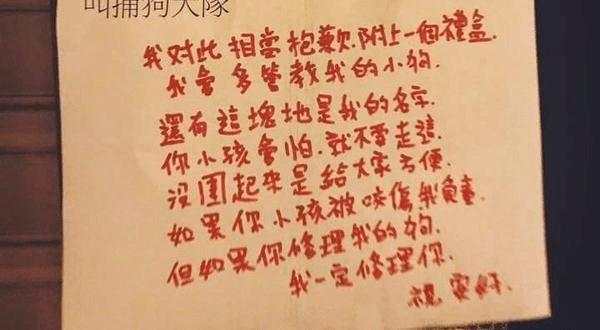 叫捕狗大隊
我对此相當抱歉.附上一個禮盒.
我會多管教我的小狗.
還有這塊地是我的名字.
你小孩會怕.就不要走這.
沒圍起來是給大家方便.
如果你小孩被咬傷我負責.
但如果你修理我的狗.
我一定修理你.
祝 安好.